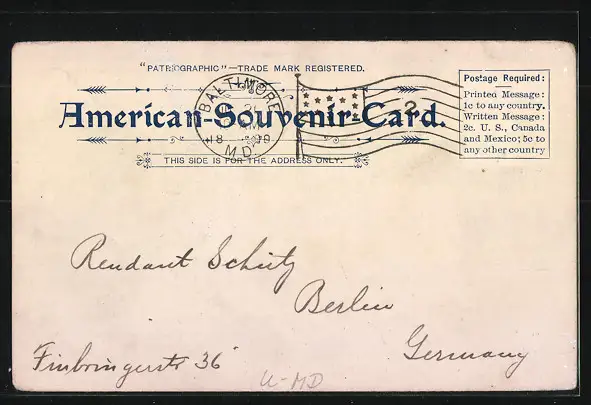 "PATRIOGRAPHIC"—TRADE MARK REGISTERED.
American-Souvenir-Card.
THIS SIDE IS FOR THE ADDRESS ONLY.
BALTIMORE
M.D.
2
Postage Required:
Printed Message:
1c to any country.
Written Message:
2c. U. S., Canada
and Mexico; 5c to
any other country
Rendant Schütz
Berlin
Germany
36
U-MD